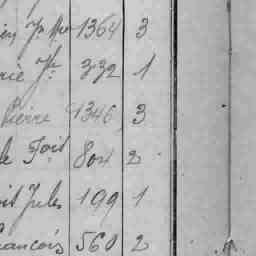 1364 3
rie 332 1
Pierre 1346 3
le Toit 804 2
Jules 199 1
rancois 560 2